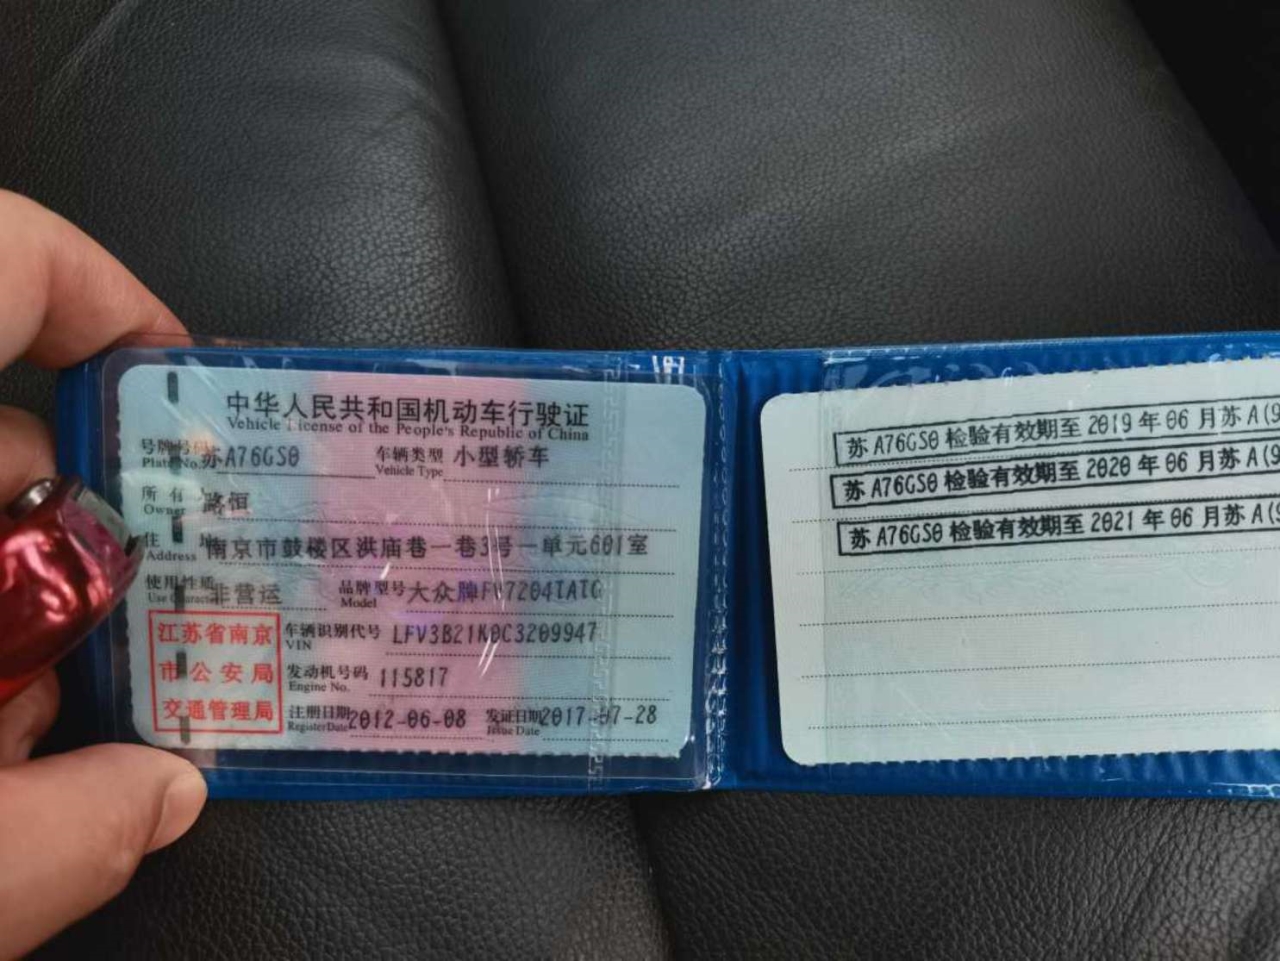 中华人民共和国机动车行驶证
Vehicle License of the People's Republic of China
号牌号码 苏A76GS0 车辆类型 小型轿车
Plate No. Vehicle Type
所有人 路恒
Owner
住址 南京市鼓楼区洪庙巷一巷3号一单元601室
Address
使用性质 非营运 品牌型号 大众牌FV7204TATG
Use Character Model
江苏省南京
市公安局
交通管理局
车辆识别代号 LFV3B21K0C3209947
VIN
发动机号码 115817
Engine No.
注册日期 2012-06-08 发证日期 2017-07-28
Register Date Issue Date
苏A76GS0检验有效期至2019年06月苏A(9
苏A76GS0检验有效期至2020年06月苏A(9
苏A76GS0检验有效期至2021年06月苏A(9